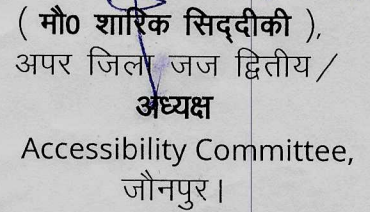 ( मौ0 शारिक सिद्दीकी ),
अपर जिला जज द्वितीय /
अध्यक्ष
Accessibility Committee,
जौनपुर।